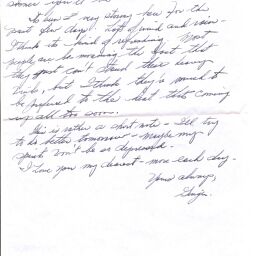 sooner you'll
To here I very strong here for the
past few days. Lots of wind and rain -
I think it's kind of refreshing. Most
people are be moaning the fact that
they just can't stand these
but I think they're
be to the heat that's coming
up all too soon.
This is rather a short note - I'll try
to do better tomorrow - maybe my
spirit won't be as depressed.
I love you my dearest - more each day.
Yours always,